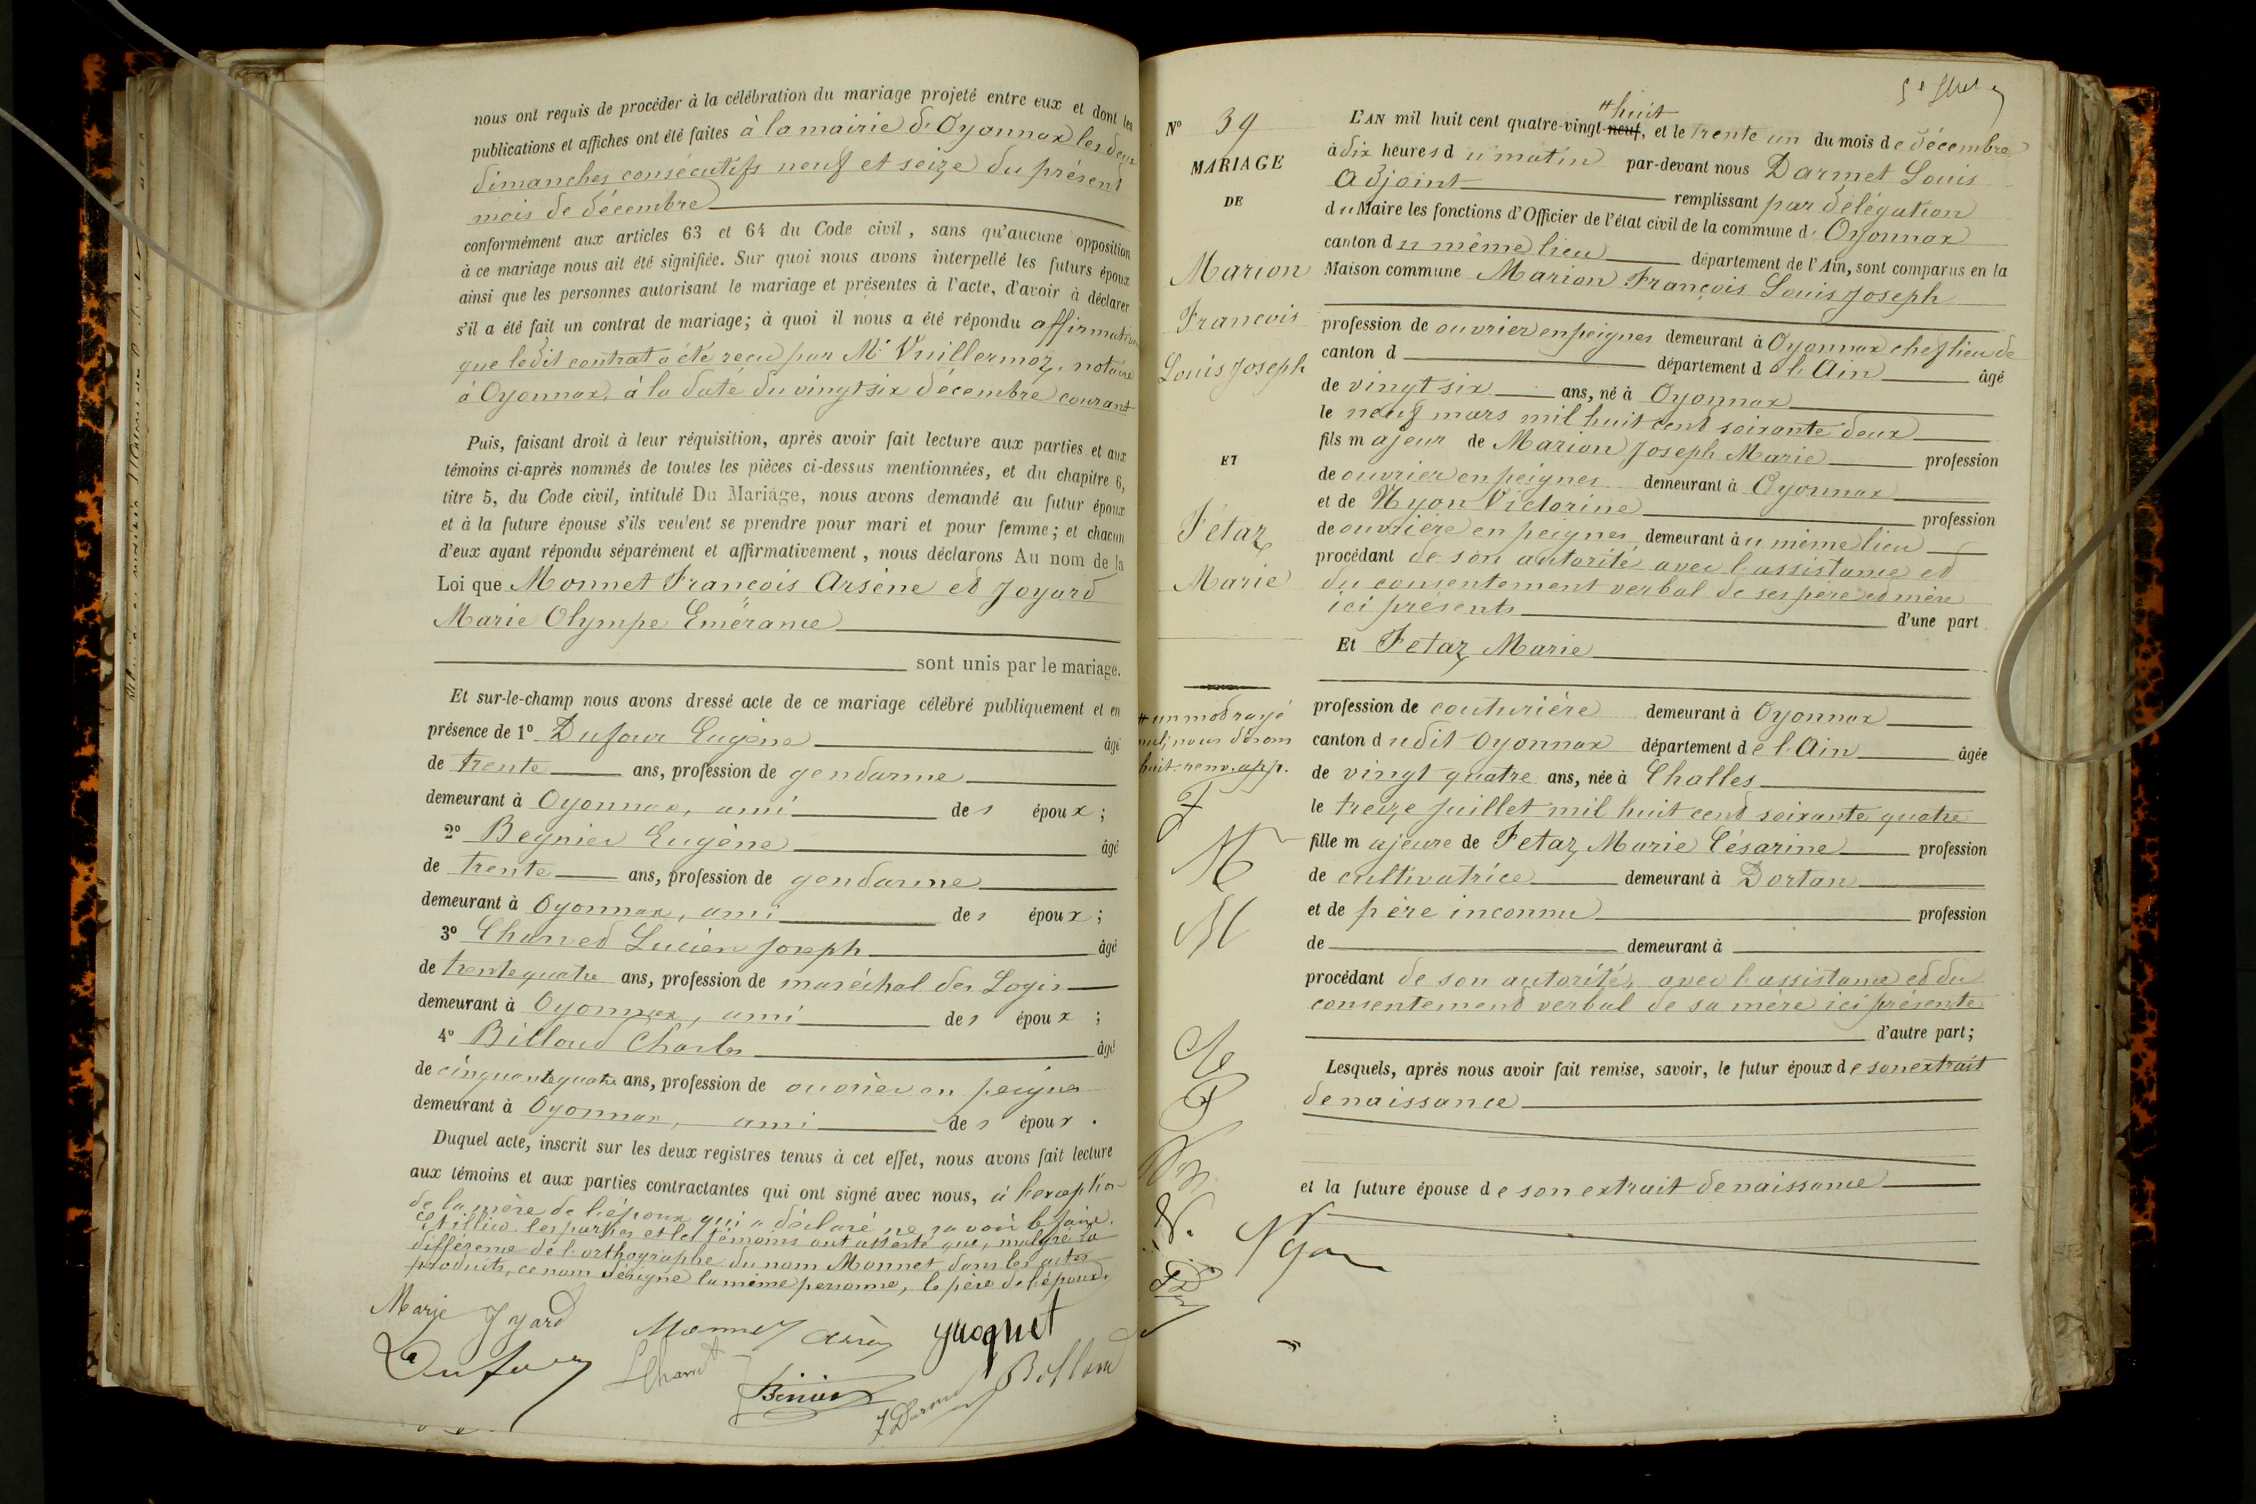 nous ont requis de procéder à la célébration du mariage projeté entre eux et dont les
publications et affiches ont été faites à la mairie d'Oyonnax les deux
dimanches consécutifs neuf et seize du présent
mois de décembre
conformément aux articles 63 et 64 du Code civil, sans qu'aucune opposition
à ce mariage nous ait été signifiée. Sur quoi nous avons interpellé les futurs époux
ainsi que les personnes autorisant le mariage et présentes à l'acte, d'avoir à déclarer
s'il a été fait un contrat de mariage; à quoi il nous a été répondu affirmativem
que ledit contrat a été reçu par Me Vuillermoz, notaire
à Oyonnax, à la date du vingt six décembre courant
Puis, faisant droit à leur réquisition, après avoir fait lecture aux parties et aux
témoins ci-après nommés de toutes les pièces ci-dessus mentionnées, et du chapitre 6,
titre 5, du Code civil, intitulé Du Mariage, nous avons demandé au futur époux
et à la future épouse s'ils veulent se prendre pour mari et pour femme; et chacun
d'eux ayant répondu séparément et affirmativement, nous déclarons Au nom de la
Loi que Monnet François Arsène et Joyard
Marie Olympe Emérance
sont unis par le mariage.
Et sur-le-champ nous avons dressé acte de ce mariage célébré publiquement et en
présence de 1º Dufour Eugène âgé
de trente ans, profession de gendarme
demeurant à Oyonnax, ami des époux;
2º Begnier Eugène âgé
de trente ans, profession de gendarme
demeurant à Oyonnax, ami des époux;
3º Charved Lucien Joseph âgé
de trente quatre ans, profession de maréchal des Logis
demeurant à Oyonnax, ami des époux;
4º Billoud Charles âgé
de cinquante quatre ans, profession de ouvrier en peignes
demeurant à Oyonnax, ami des époux.
Duquel acte, inscrit sur les deux registres tenus à cet effet, nous avons fait lecture
aux témoins et aux parties contractantes qui ont signé avec nous, à l'exception
de la mère de l'époux qui a déclaré ne savoir le faire.
Et illico les parties et les témoins ont attesté que, malgré la
différence de l'orthographe du nom Monnet dans les actes
produits, ce nom désigne la même personne, le père de l'époux.
Marie Joyard Monnet Arsène Jacquet
Dufour LCharvet Billoud
Bénier Darmet
Nº 39
MARIAGE
DE
Marion
François
Louis Joseph
ET
Fétaz
Marie
# un mot rayé
nul; nous disons
huit. renv. app.
huit
L'AN mil huit cent quatre-vingt-neuf, et le trente un du mois de décembre
à dix heures du matin par-devant nous Darmet Louis
Adjoint remplissant par délégation
du Maire les fonctions d'Officier de l'état civil de la commune d'Oyonnax
canton du même lieu département de l'Ain, sont comparus en la
Maison commune Marion François Louis Joseph
profession de ouvrier en peignes demeurant à Oyonnax chef lieu de
canton d département de l'Ain âgé
de vingt six ans, né à Oyonnax
le neuf mars mil huit cent soixante deux
fils majeur de Marion Joseph Marie profession
de ouvrier en peignes demeurant à Oyonnax
et de Nyon Victorine profession
de ouvrière en peignes demeurant au même lieu
procédant de son autorité avec l'assistance et
du consentement verbal de ses père et mère
ici présents d'une part
Et Fetaz Marie
profession de couturière demeurant à Oyonnax
canton dudit Oyonnax département de l'Ain âgée
de vingt quatre ans, née à Challes
le treize juillet mil huit cent soixante quatre
fille majeure de Fetaz Marie Césarine profession
de cultivatrice demeurant à Dortan
et de père inconnu profession
de demeurant à
procédant de son autorité, avec l'assistance et du
consentement verbal de sa mère ici présente
d'autre part;
Lesquels, après nous avoir fait remise, savoir, le futur époux de son extrait
de naissance
et la future épouse de son extrait de naissance
Nyon